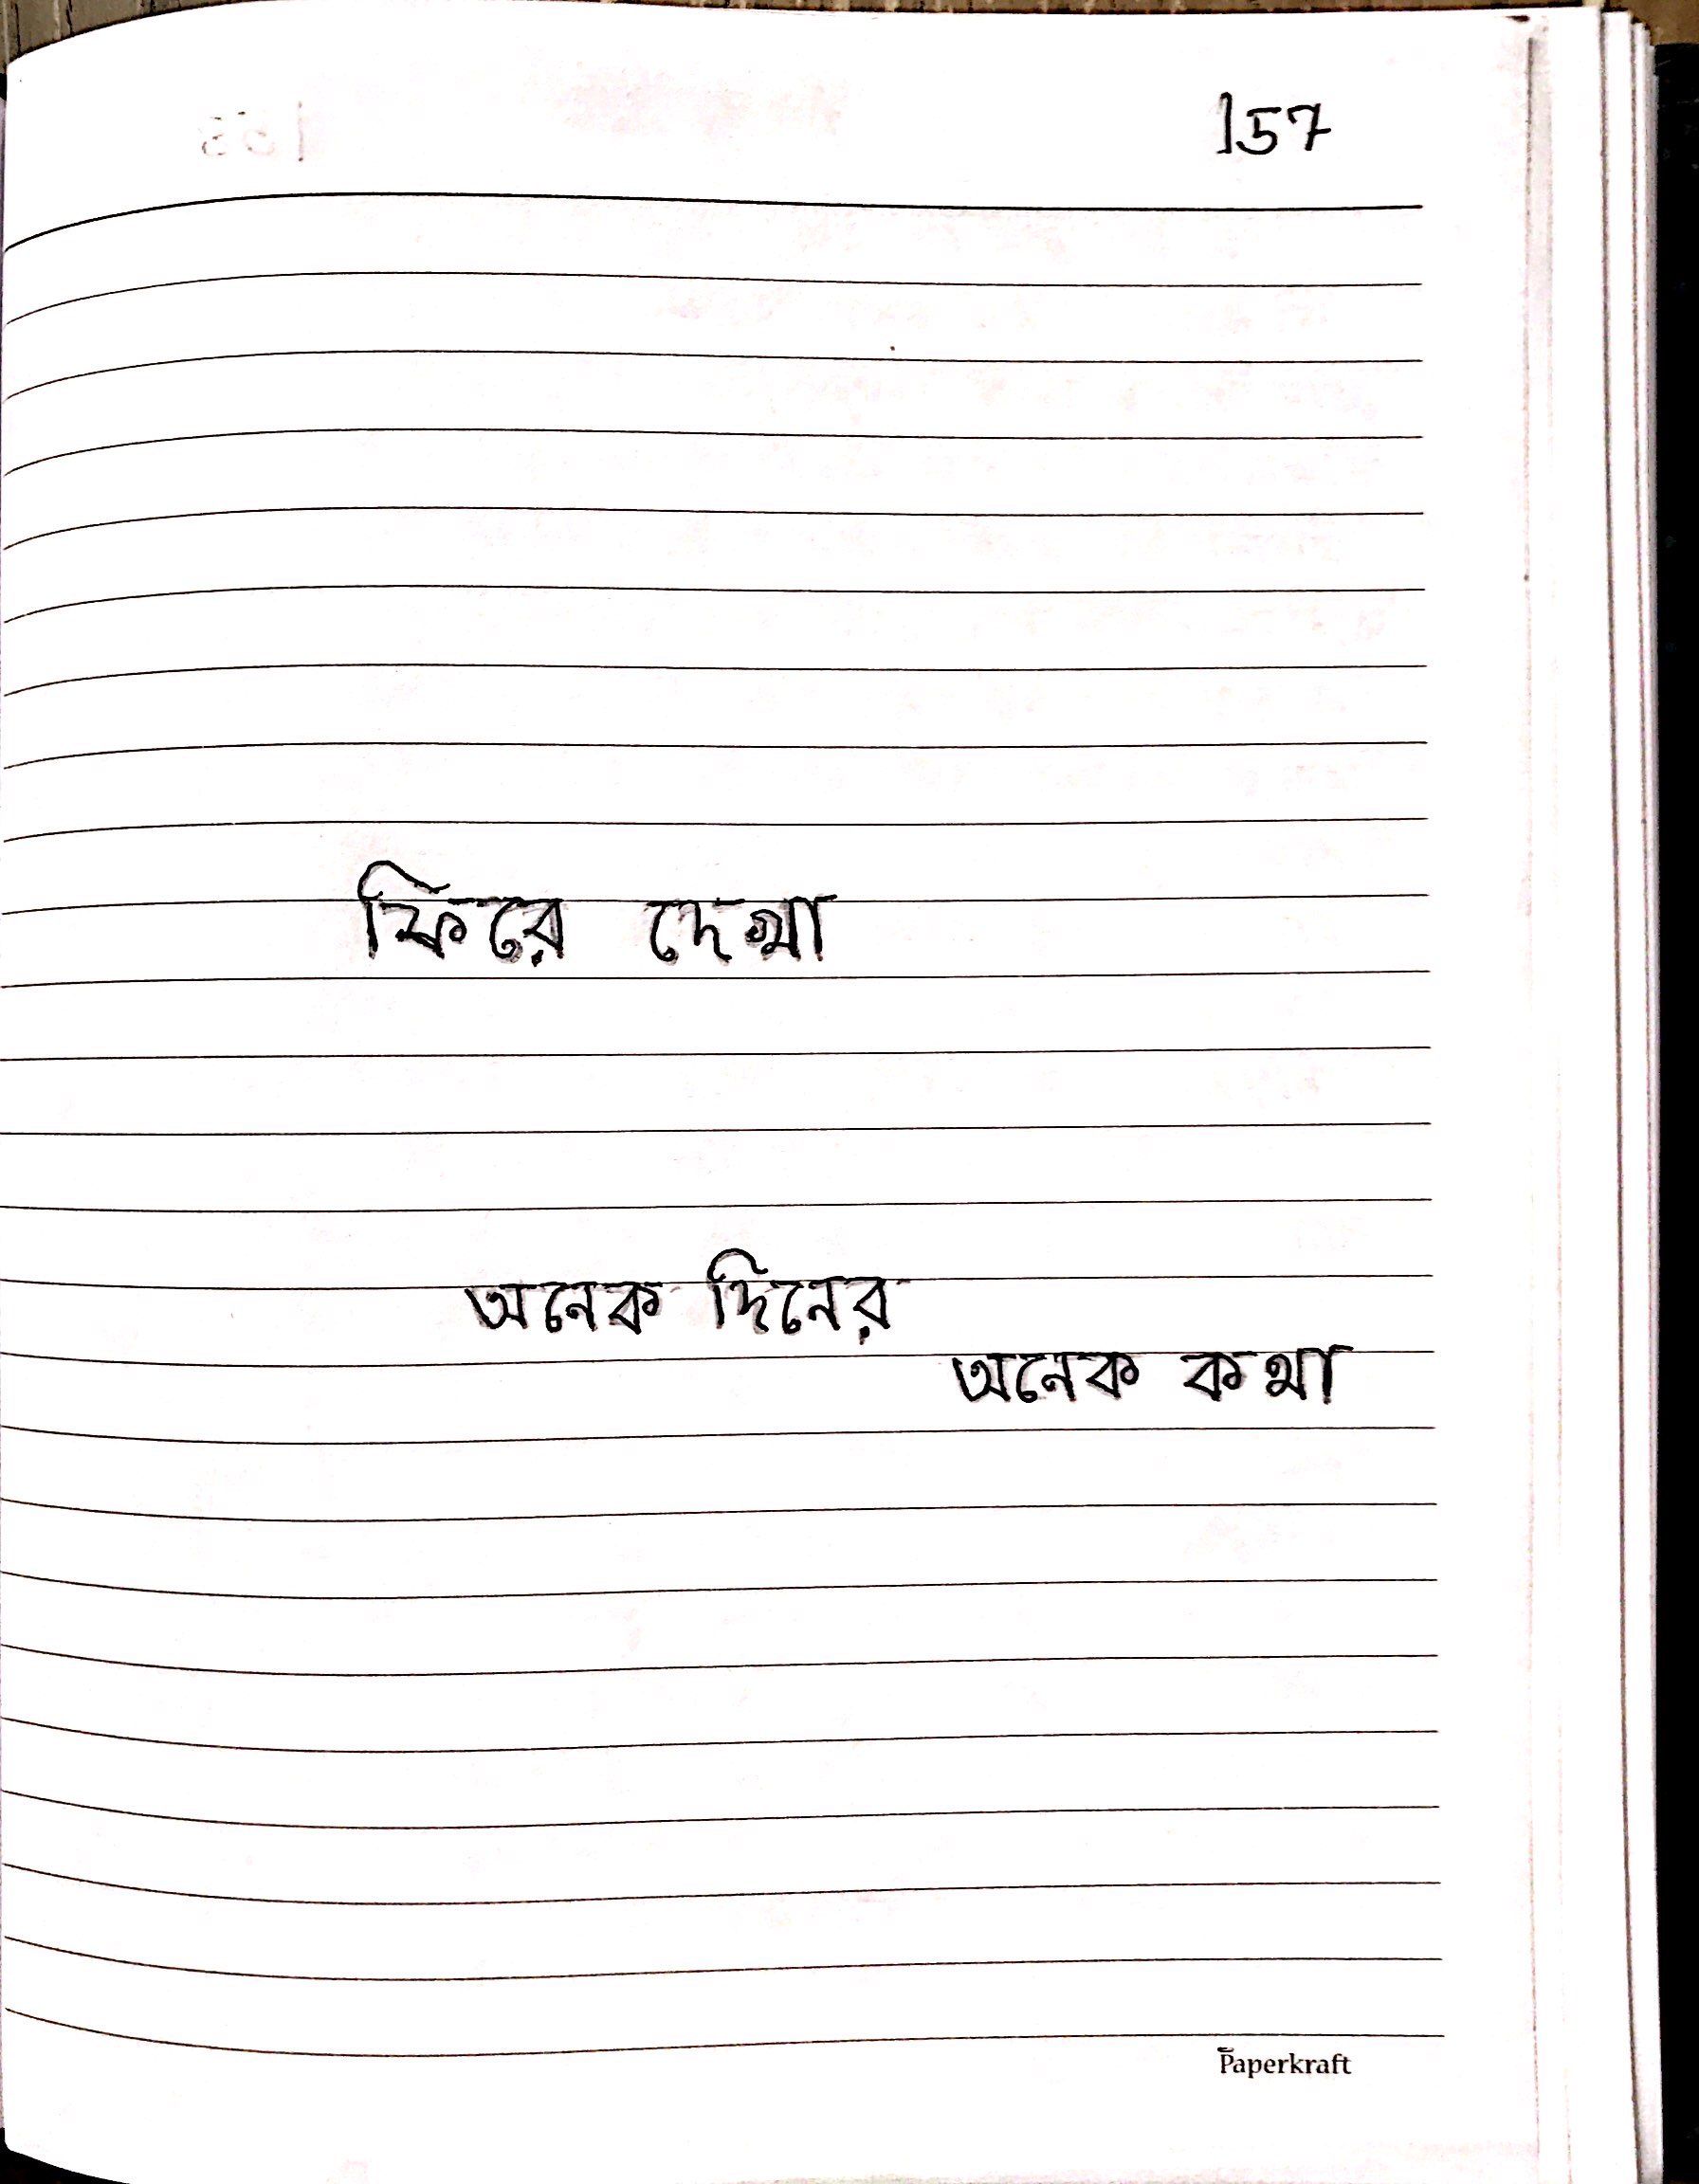 157
ফিরে দেখা
অনেক দিনের
অনেক কথা
Paperkraft